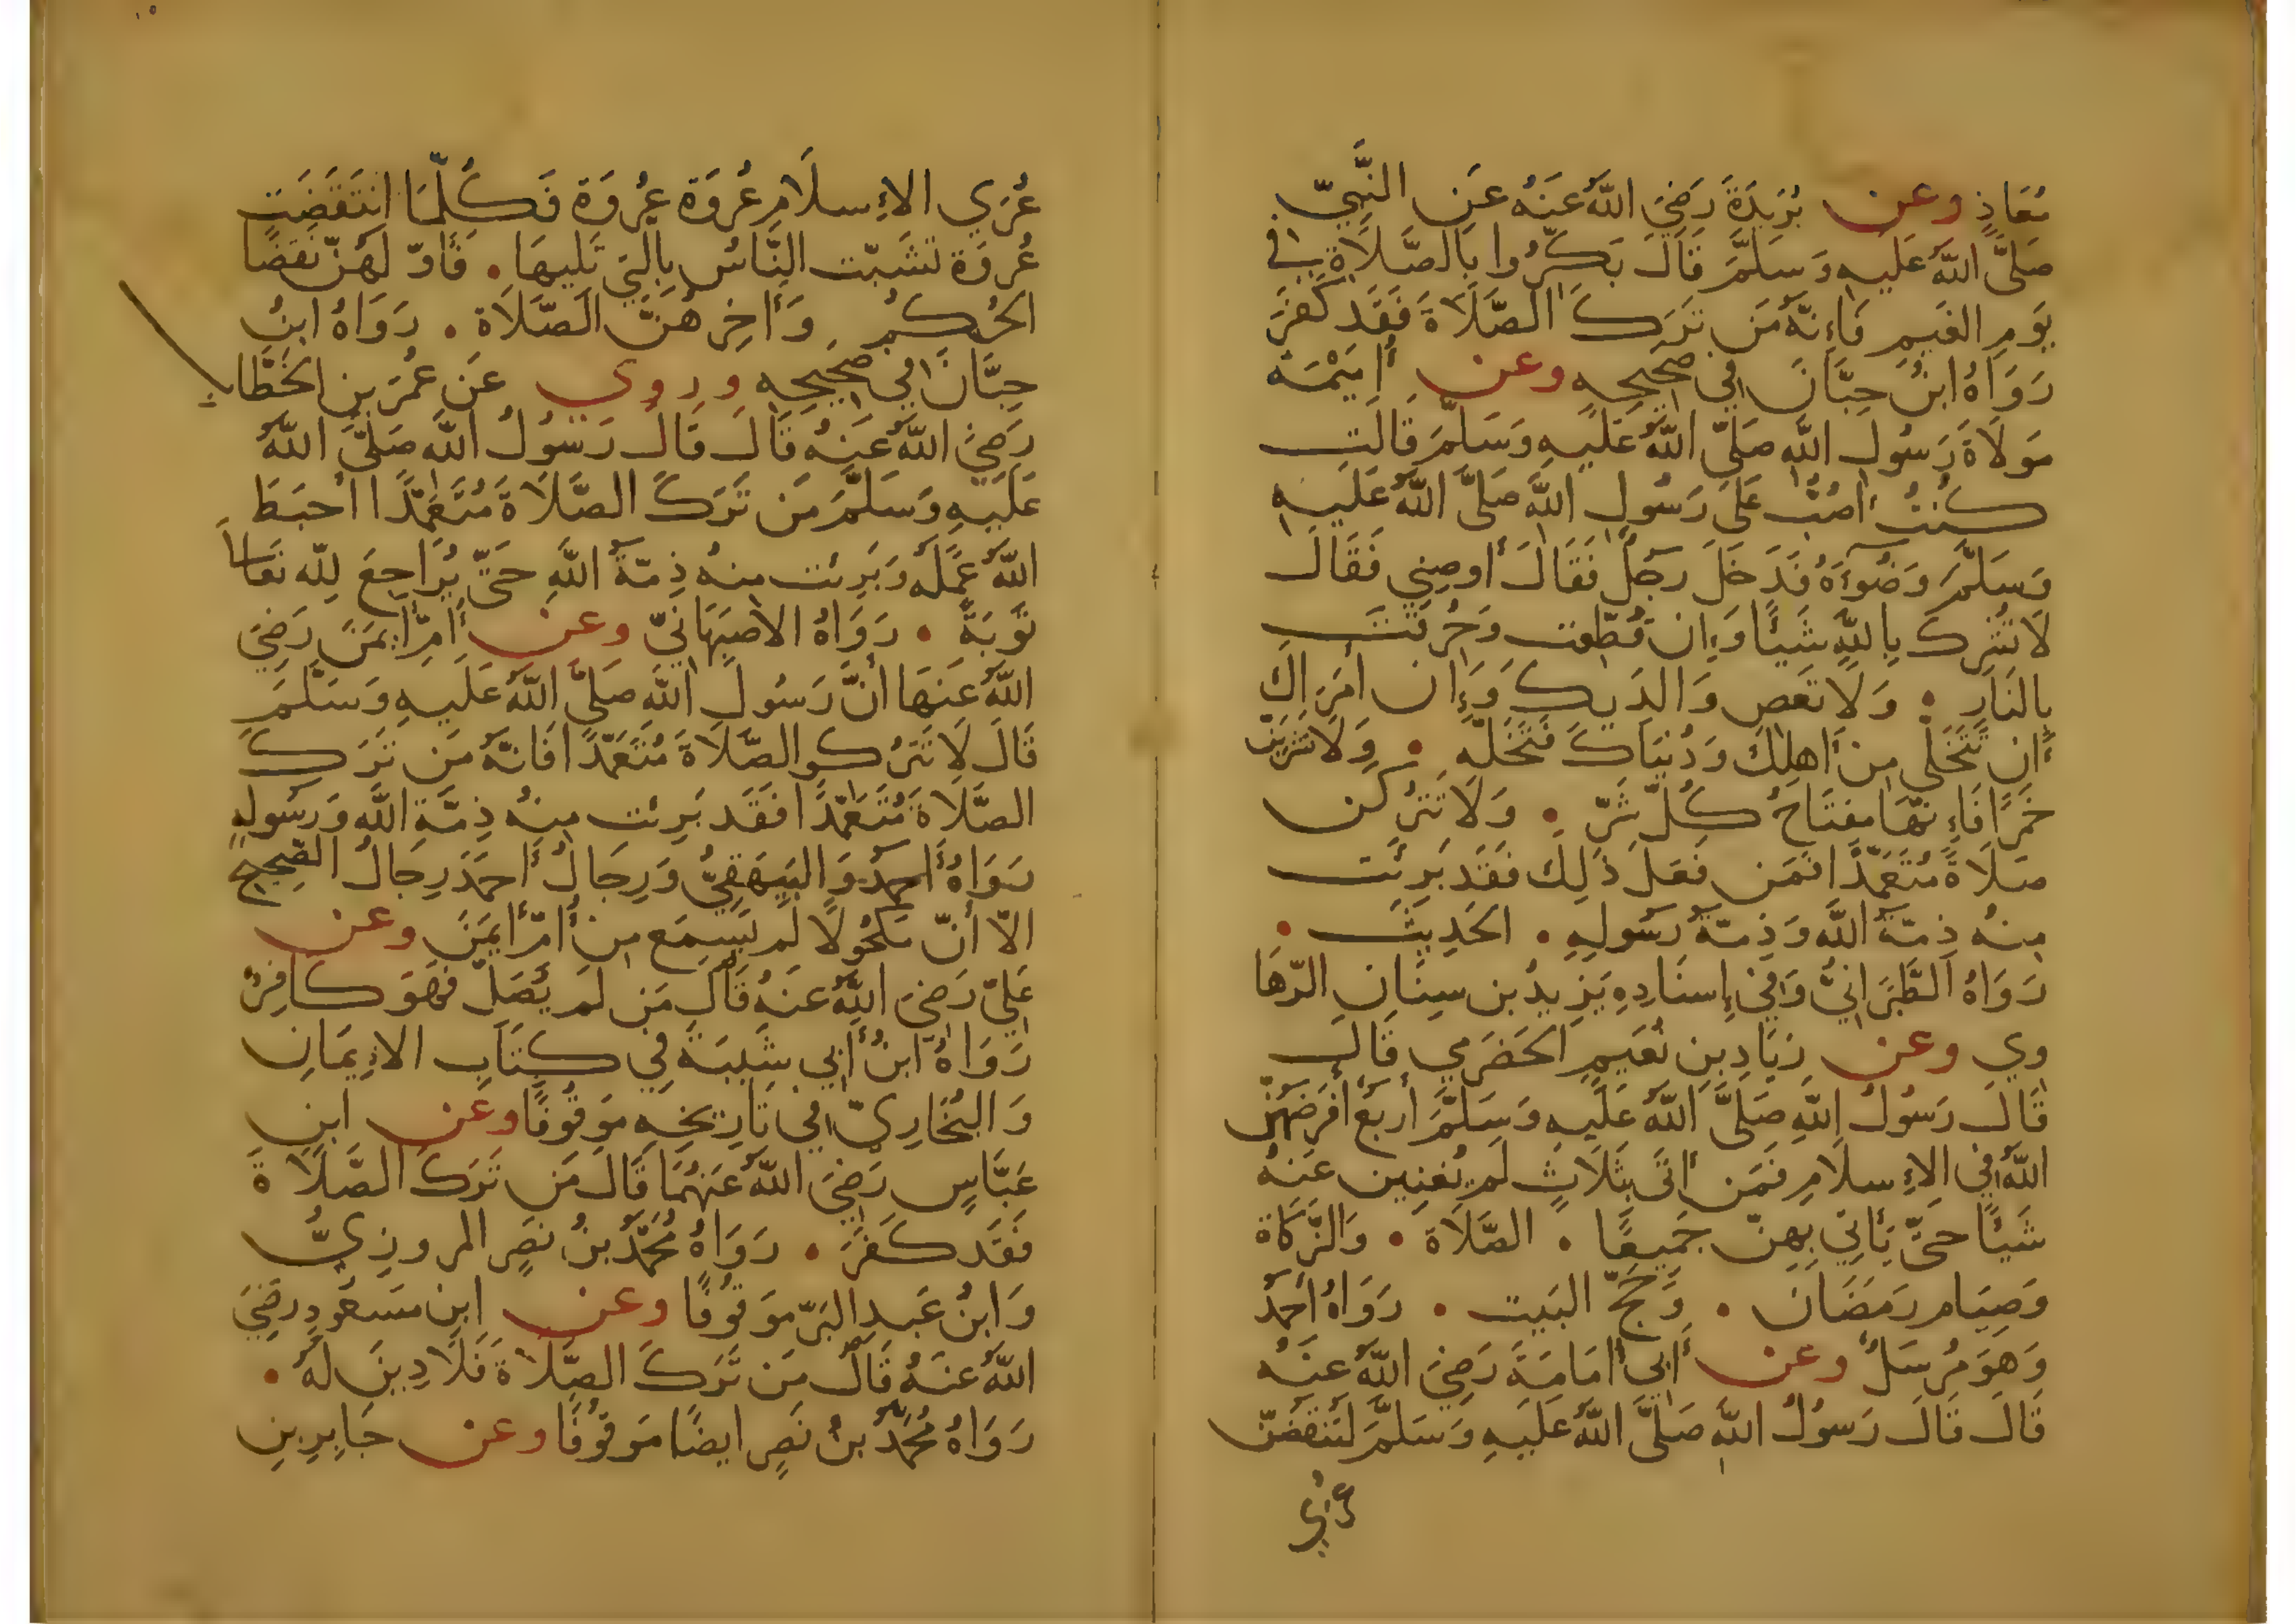 مُعَاذٍ وعن بُرَيدَةَ رَضِيَ اللهُ عَنهُ عَنِ النَّبِيِّ
صَلَّى اللهُ عَلَيهِ وَسَلَّمَ قَالَ بَكِّرُوا بِالصَّلَاةِ فِي
يَومِ الغَيمِ فَإِنَّهُ مَن تَرَكَ الصَّلَاةَ فَقَد كَفَرَ
رَوَاهُ ابنُ حِبَّانَ فِي صَحِيحِهِ وعن أُمَيْمَةَ
مَولَاةَ رَسُولِ اللهِ صَلَّى اللهُ عَلَيهِ وَسَلَّمَ قَالَت
كُنتُ أَصُبُّ عَلَى رَسُولِ اللهِ صَلَّى اللهُ عَلَيهِ
وَسَلَّمَ وَضُوءَهُ فَدَخَلَ رَجُلٌ فَقَالَ أَوصِنِي فَقَالَ
لَا تُشرِك بِاللهِ شَيئًا وَإِن قُطِّعتَ وَحُرِّقتَ
بِالنَارِ • وَلَا تَعصِ وَالدَيكَ وَإِن أَمَرَاكَ
أَن تَتَخَلَّى مِن أَهلِكَ وَدُنيَاكَ فَتَخَلَّه • وَلَا تَشرَبَنَّ
خَمرًا فَإِنَّهَا مِفتَاحُ كُلِّ شَرٍّ • وَلَا تَترُكَن
صَلَاةً مُتَعَمِّدًا فَمَن فَعَلَ ذَلِكَ فَقَد بَرِئَت
مِنهُ ذِمَّةُ اللهِ وَذِمَّةُ رَسُولِهِ • الحَدِيثَ •
رَوَاهُ الطَّبَرَانِيُّ وَفِي إِسنَادِهِ يَزِيدُ بن سِنَانِ الرّهَا
وِي وعن زِيَادِ بنِ نُعَيمِ الحَضرَمِي قَالَ
قَالَ رَسُولُ اللهِ صَلَّى اللهُ عَلَيهِ وَسَلَّمَ أَربَعٌ أفرَضَهُنَّ
اللهُ فِي الإِسلَامِ فَمَن أَتَى بِثَلَاثٍ لَم يُغنِينَ عَنهُ
شَيئًا حَتَّى يَأتِي بِهِنَّ جَمِيعًا • الصَّلَاة • وَالزَّكَاة
وَصِيَام رَمَضَانَ • وَحَجّ البَيت • رَوَاهُ أَحمَدُ
وَهُوَ مُرسَلٌ وعن أَبِي أُمَامَةَ رَضِيَ اللهُ عَنهُ
قَالَ قَالَ رَسُولُ اللهِ صَلَّى اللهُ عَلَيهِ وَسَلَّمَ لَتُنقَضَنَّ
عُرَي
عُرَي الإِسلَامِ عُروَة عُروَة فَكُلَّمَا انتَقَضَت
عُروَة تَشَبَّت النَّاسُ بِالَتِي تَلِيهَا • فَأَوّلهُنّ نَقضًا
الحُكمُ وَأَخِرهُنَّ الصَّلَاة • رَوَاهُ ابنُ
حِبَّانَ فِي صَحِيحِهِ وروي عَن عُمَرَ بنِ الخَطَّاب
رَضِيَ اللهُ عَنهُ قَالَ قَالَ رَسُولُ اللهِ صَلَّى اللهُ
عَلَيهِ وَسَلَّمَ مَن تَرَكَ الصَّلَاةَ مُتَعَمِّدًا احبَطَ
اللهُ عَمَلَهُ وَبَرِئت مِنهُ ذِمَّةُ اللهِ حَتَّى يُرَاجِعَ لِلّه تَعَالَى
تَوبَةً • رَوَاهُ الأصبَهَانِيّ وعن أُمِّ أَيمَنَ رَضِيَ
اللهُ عَنهَا أَنَّ رَسُولَ اللهِ صَلَّى اللهُ عَلَيهِ وَسَلَّمَ
قَالَ لَا تَترُكوا الصَّلَاةَ مُتَعَمِّدًا فَانَّهُ مَن تَرَكَ
الصَّلَاةَ مُتَعَمِّدًا فَقَد بَرِئت مِنهُ ذِمَّةُ اللهِ وَرَسُولِهِ
رَوَاهُ أَحمَدُ وَالبَيهَقِيُّ وَرِجَالُ أَحمَدَ رِجَالُ الصَّحِيحِ
الّا أَنَّ مَكحُولًا لَم يَسمَع مِن أُمِّ أَيمَنَ وعن
عَلِيّ رَضِيَ اللهُ عَنهُ قَالَ مَن لَم يُصَلِّ فَهوَ كَافِرٌ
رَوَاهُ ابنُ أَبِي شَيبَةَ فِي كِتَابِ الإِيمَانِ
وَالبُخَارِيّ فِي تَارِيخِهِ مَوقُوفًا وعن ابنِ
عَبَّاسٍ رَضِيَ اللهُ عَنهُمَا قَالَ مَن تَرَكَ الصَّلَاةَ
فَقَد كَفَرَ • رَوَاهُ مُحَمَّدُ بنُ نَصرٍ المروزِيُّ
وَابنُ عَبدِ البَرّ مَوقُوفًا وعن ابنِ مَسعُودٍ رَضِيَ
اللهُ عَنهُ قَالَ مَن تَرَكَ الصَّلَاةَ فَلَا دِينَ لَهُ •
رَوَاهُ مُحَمَّدُ بنُ نَصرٍ ايضًا مَوقُوفًا وعن جَابِرِ بنِ